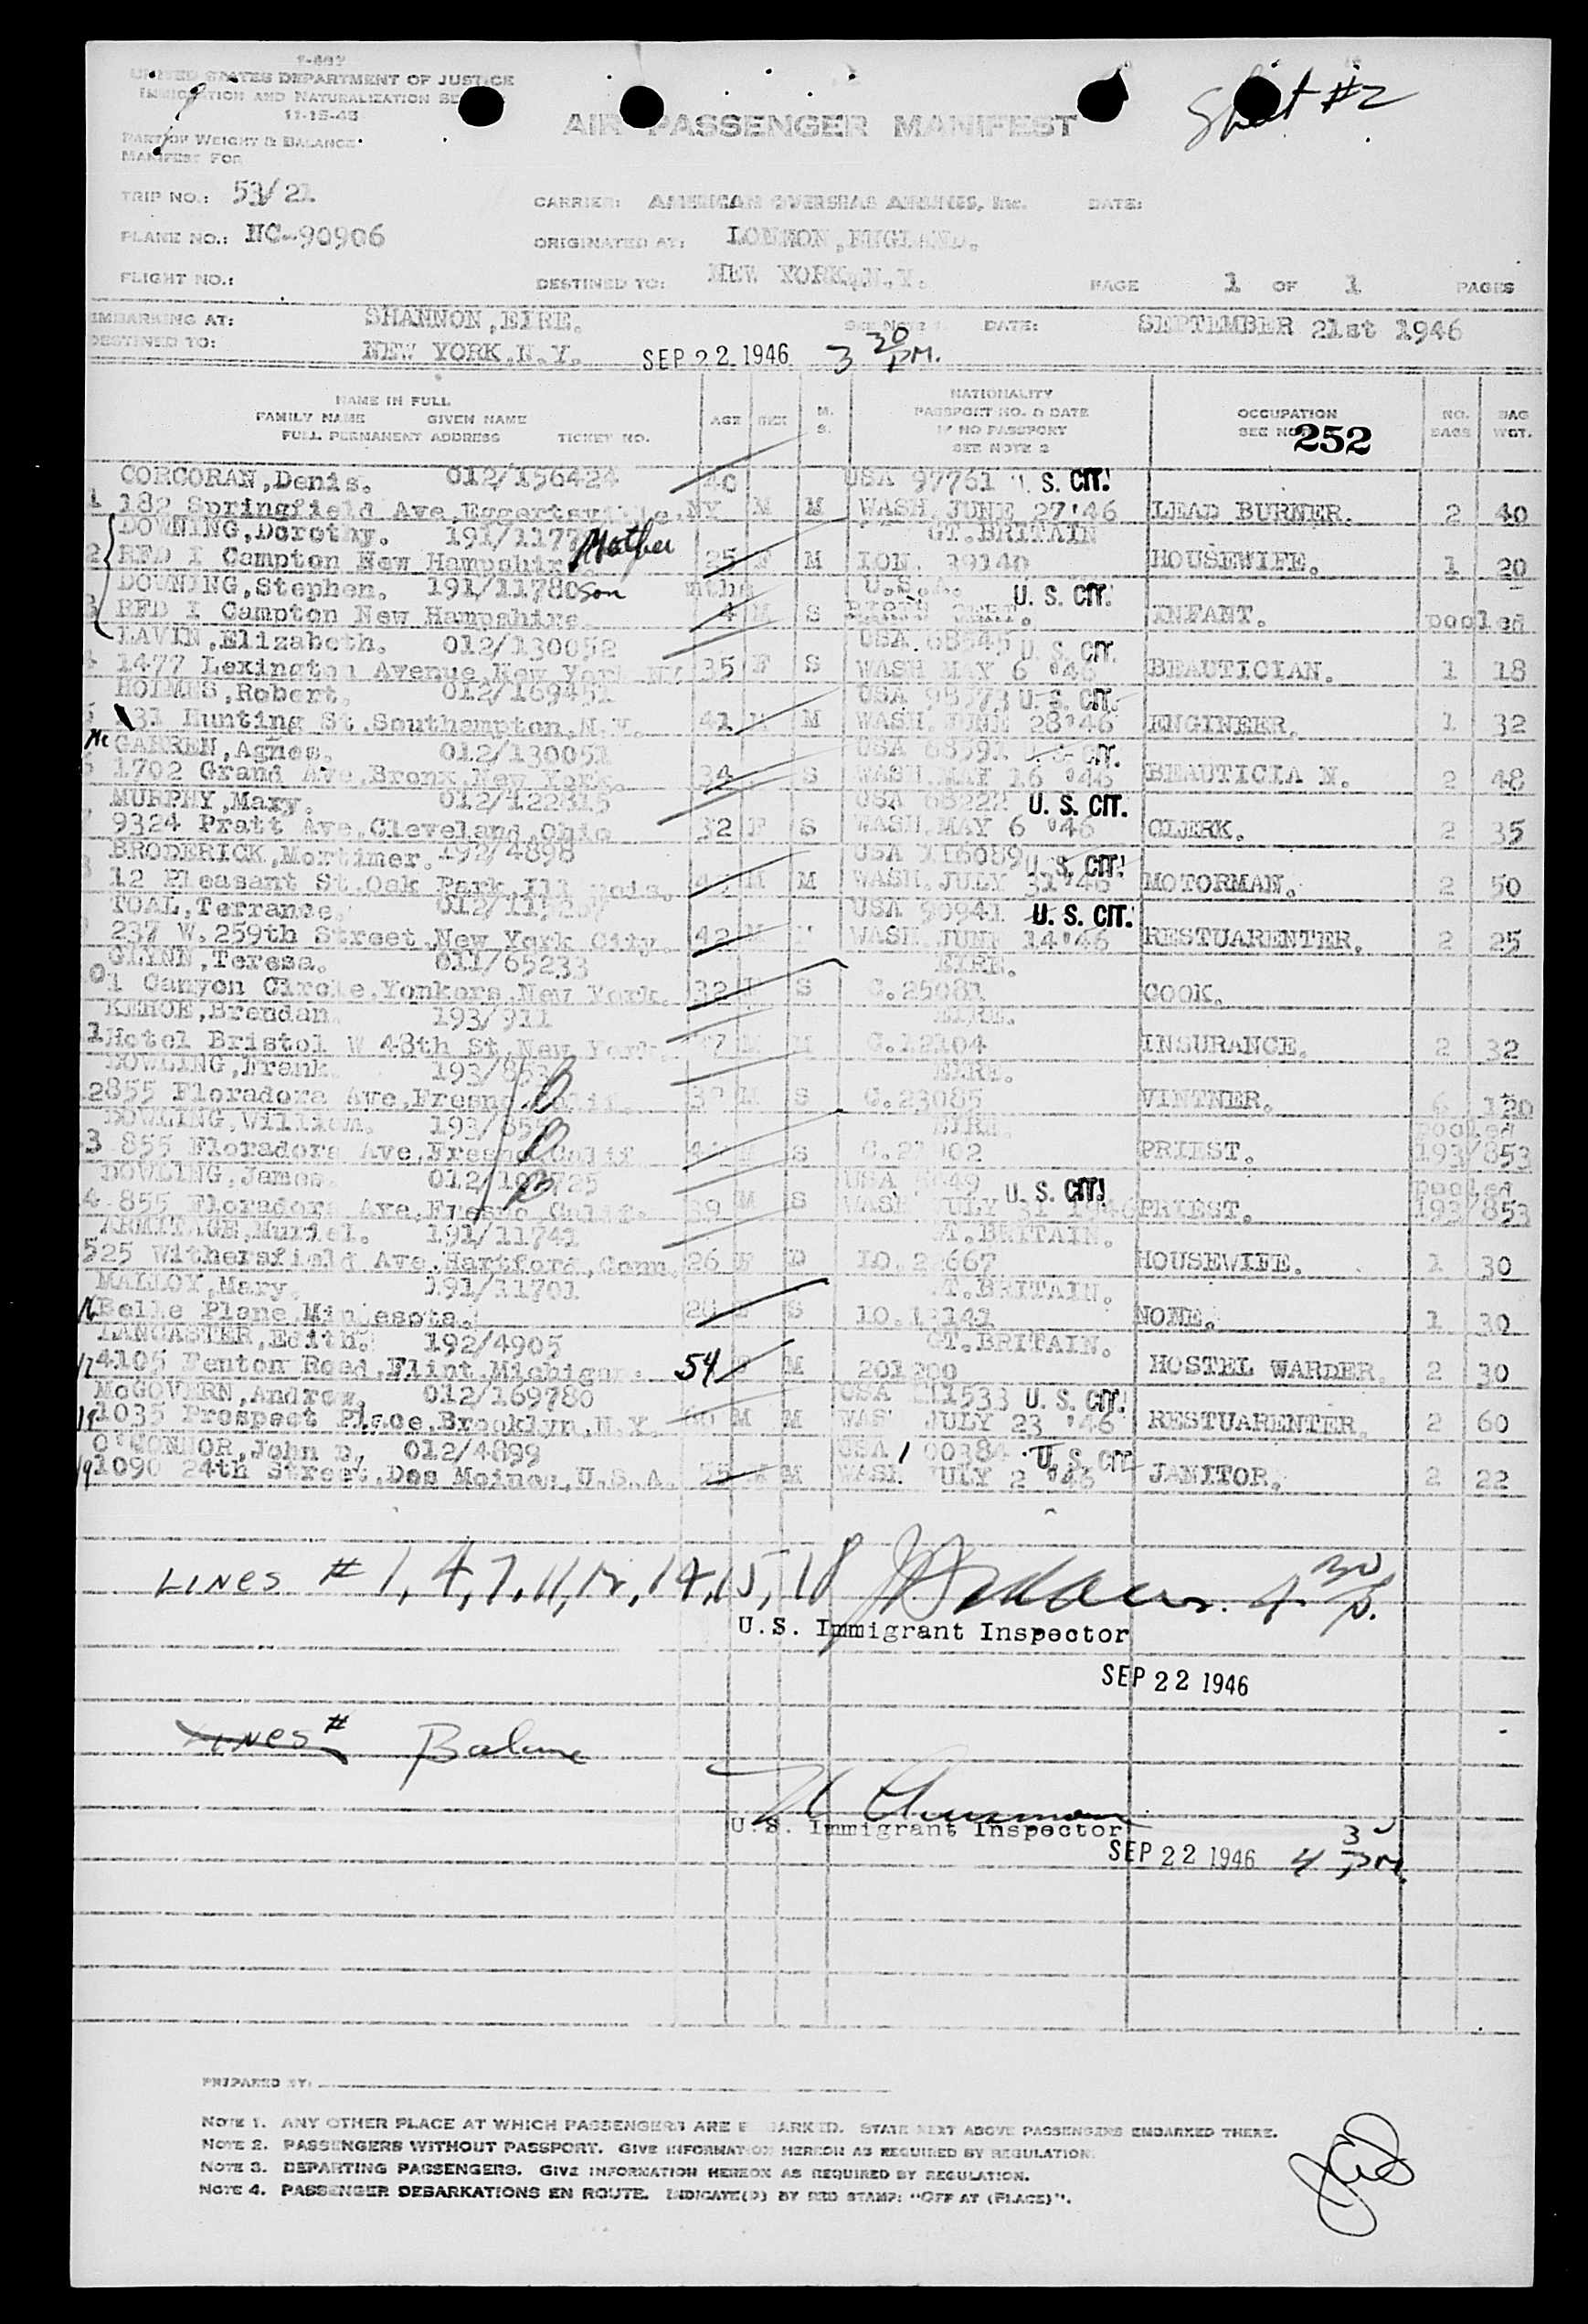 UNITED STATES DEPARTMENT OF JUSTICE
IMMIGRATION AND NATURALIZATION
11-15-45
Sheet #2
AIR PASSENGER MANIFEST
PART OF WEIGHT & BALANCE
MANIFEST FOR
TRIP NO.: 53/21 CARRIER: AMERICAN OVERSEAS AIRLINES, Inc. DATE:
PLANE NO.: NC-90906 ORIGINATED AT: LONDON, ENGLAND.
FLIGHT NO.: DESTINED TO: NEW YORK, N.Y. PAGE 1 OF 1 PAGES
EMBARKING AT: SHANNON, EIRE. DATE: SEPTEMBER 21st 1946
DESTINED TO: NEW YORK, N.Y. SEP 22 1946 3 30 PM.
NAME IN FULL
FAMILY NAME GIVEN NAME
FULL PERMANENT ADDRESS TICKET NO. AGE SEX M. S. NATIONALITY PASSPORT NO. & DATE IF NO PASSPORT SEE NOTE 2 OCCUPATION 252 NO. BAGS BAG WGT.
CORCORAN, Denis. 012/156424 40 USA 97761 U. S. CIT.
1 182 Springfield Ave, Eggertsville, NY M M WASH. JUNE 27'46 LEAD BURNER. 2 40
DOWNING, Dorothy. Mother GT. BRITAIN
2 RFD I Campton New Hampshire 25 F M LON. 39140 HOUSEWIFE. 1 20
DOWNING, Stephen. 191/11780 Son mths U.S.A. U. S. CIT.
3 RFD I Campton New Hampshire. 4 M S INFANT. pooled
LAVIN, Elizabeth. 012/130052 USA. U. S. CIT.
4 1477 Lexington Avenue, New York NY 35 F S WASH MAY 6 '46 BEAUTICIAN. 1 18
HOLMES, Robert. 012/169451 USA U. S. CIT.
5 31 Hunting St, Southampton, N.Y. 41 M M WASH. JUNE 28'46 ENGINEER. 1 32
Agnes. 012/130051 USA U. S. CIT.
1702 Grand Ave, Bronx, New York. 34 S WASH. MAY 16 '46 BEAUTICIA N. 2 48
MURPHY, Mary. USA U. S. CIT.
9324 Pratt Ave, Cleveland, Ohio 32 F S WASH. MAY 6 '46 CLERK. 2 35
BRODERICK, Mortimer. 192/4898 USA 116089 U. S. CIT.
12 Pleasant St, Oak Park, M M WASH. JULY 31'46 MOTORMAN. 2 50
TOAL, Terrance. USA 90941 U. S. CIT.
237 W. 259th Street, New York City. 42 M WASH. JUNE 14'46 RESTUARENTER. 2 25
GLYNN, Teresa. 011/65233 EIRE.
1 Canyon Circle, Yonkers, New York. 32 F S COOK.
KEHOE, Brendan. 193/911 EIRE.
Hotel Bristol W 48th St, New York. M C.12104 INSURANCE. 2 32
DOWLING, Frank. EIRE.
855 Floradora Ave, Fresno, Calif. M S C.23085 VINTNER. 6 120
DOWLING, William. EIRE. pooled
3 855 Floradora Ave, Fresno Calif S PRIEST. 193/853
DOWLING, James. USA U. S. CIT. pooled
4 855 Floradora Ave, Fresno Calif. 39 M S WASH JULY 31 1946 PRIEST. 193/853
ARMITAGE, Muriel. 191/11741 GT. BRITAIN.
525 Withersfield Ave. Hartford, Conn. 26 F D HOUSEWIFE. 1 30
MALLOY, Mary. 191/11701 GT. BRITAIN.
16 Belle Plane, Minnesota. S NONE. 1 30
LANCASTER, Edith. 192/4905 GT. BRITAIN.
17 4105 Fenton Road, Flint, Michigan. 54 M HOSTEL WARDER. 2 30
McGOVERN, Andrew. 012/169780 USA U. S. CIT.
18 1035 Prospect Place, Brooklyn, N.Y. M M WASH JULY 23 '46 RESTUARENTER. 2 60
O'CONNOR, John D, 012/4899 USA U. S. CIT.
19 1090 24th Street, Des Moines, U.S.A. M WASH. JULY 2 '46 JANITOR. 2 22
LINES # 1, 4, 7, 11, 12, 14, 15, 18 4 30 P.
U.S. Immigrant Inspector
SEP 22 1946
LINES # Balance
U.S. Immigrant Inspector
SEP 22 1946 4 30 PM.
PREPARED BY:
NOTE 1. ANY OTHER PLACE AT WHICH PASSENGERS ARE EMBARKED. STATE NEXT ABOVE PASSENGERS EMBARKED THERE.
NOTE 2. PASSENGERS WITHOUT PASSPORT. GIVE INFORMATION HEREON AS REQUIRED BY REGULATION.
NOTE 3. DEPARTING PASSENGERS. GIVE INFORMATION HEREON AS REQUIRED BY REGULATION.
NOTE 4. PASSENGER DEBARKATIONS EN ROUTE. INDICATE(D) BY RED STAMP: "OFF AT (PLACE)".